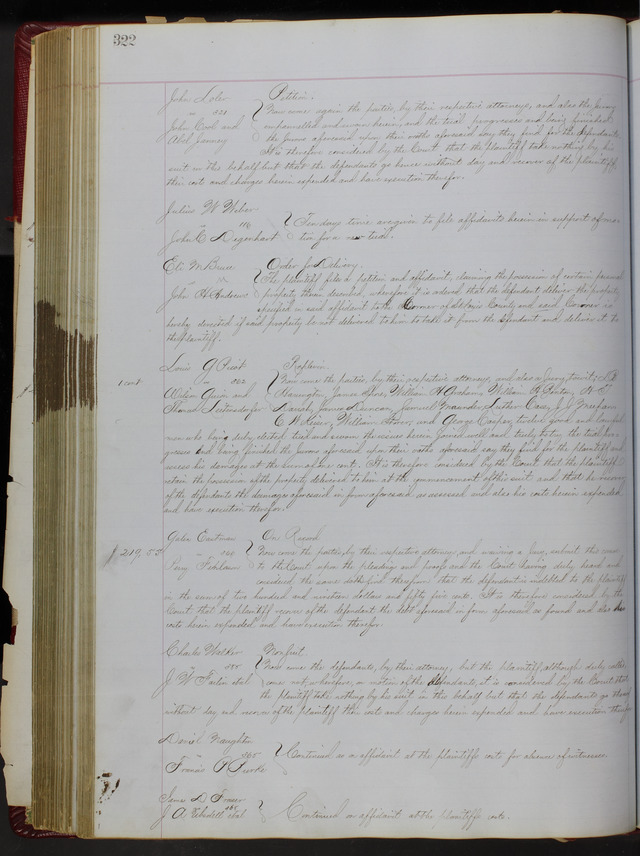 322
John Loler Petition.
Now come again the parties, by their respective attorneys, and also the Jury
John Cool and empannelled and sworn herein, and the trial progresses and being finished
Abel Janney the Jurors aforesaid upon their oaths aforesaid say they find for the defendants.
It is therefore considered by the Court that the Plaintiff take nothing by his
suit in this behalf but that the defendants go hence without day and recover of the plaintiff
their costs and charges herein expended and have execution therefor.
Julius W Weber
116 Ten days time are given to file affidavits herein in support of mo-
John C Degenhart tion for a new trial.
Eli M Bruce Order for Delivery
The plaintiff files a petition and affidavit, claiming the possession of certain personal
John H Andrews property therein described, wherefore it is ordered that the defendant deliver the property
specified in said affidavit to the Coroner of County and said Coroner is
hereby directed if said property be not delivered to him to take it from the defendant and deliver it to
the plaintiff.
Louis G Replevin.
1 cent 362 Now come the parties, by their respective attorneys and also a Jury, to wit;
and William H Graham, William
James Duncan, Samuel Luther
William and George Cooper, twelve good and lawful
men who being duly elected tried and sworn the issues herein joined well and truly to try, the trial pro-
gresses and being finished the Jurors aforesaid upon their oaths aforesaid say they find for the plaintiff and
assess his damages at the sum of one cent. It is therefore considered by the Court that the plaintiff
retain the possession of the property delivered to him at the commencement of this suit and that he recover
of the defendants the damages aforesaid in form aforesaid as assessed and also his costs herein expended
and have execution therefor.
Eastman On Record
$219.55 Now come the parties, by their respective attorneys, and waiving a Jury, submit the cause
to the Court upon the pleading and proofs and the Court having duly heard and
considered the same doth find therefrom that the defendant is indebted to the plaintiff
in the sum of two hundred and nineteen dollars and fifty five cents. It is therefore considered by the
Court that the plaintiff recover of the defendant the debt aforesaid in form aforesaid so found and also his
costs herein expended, and have execution therefor.
Charles Walker Nonsuit
Now come the defendants, by their attorney, but the plaintiff, although duly called
J W et al come not, wherefore, on motion of the defendants, it is considered by the Court that
the plaintiff take nothing by his suit in this behalf but that the defendants go thence
without day and recover of the plaintiff their costs and charges herein expended and have execution therefor
Daniel Naughton
Continued on affidavit at the plaintiffs costs for absence of witnesses.
Francis P
James D Fraser
J A et al Continued on affidavit at the plaintiffs costs.